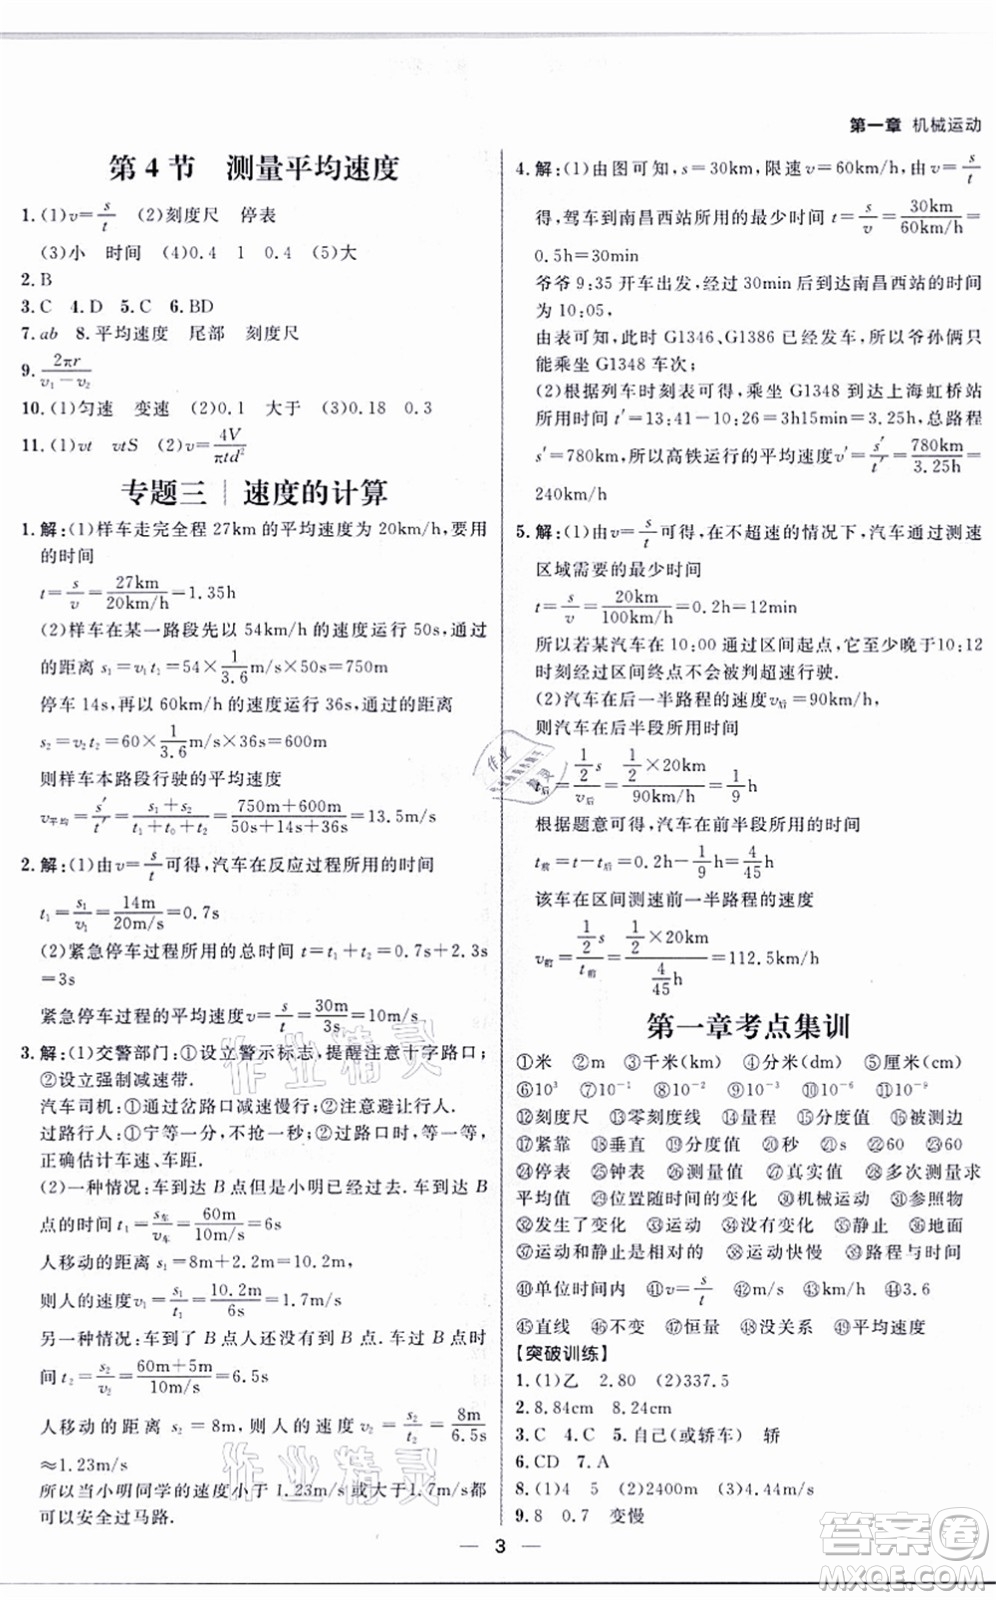 第一章 机械运动
第4节 测量平均速度
1.(1)v=s/t (2)刻度尺 停表
(3)小 时间 (4)0.4 1 0.4 (5)大
2.B
3.C 4.D 5.C 6.BD
7.ab 8.平均速度 尾部 刻度尺
9.2πr/(v₁-v₂)
10.(1)匀速 变速 (2)0.1 大于 (3)0.18 0.3
11.(1)vt vtS (2)v=4V/πtd²
专题三 | 速度的计算
1.解:(1)样车走完全程27km的平均速度为20km/h,要用
的时间
t=s/v=27km/20km/h=1.35h
(2)样车在某一路段先以54km/h的速度运行50s,通过
的距离s₁=v₁t₁=54×1/3.6m/s×50s=750m
停车14s,再以60km/h的速度运行36s,通过的距离
s₂=v₂t₂=60×1/3.6m/s×36s=600m
则样车本路段行驶的平均速度
v平均=s′/t′=(s₁+s₂)/(t₁+t₀+t₂)=(750m+600m)/(50s+14s+36s)=13.5m/s
2.解:(1)由v=s/t可得,汽车在反应过程所用的时间
t₁=s₁/v₁=14m/20m/s=0.7s
(2)紧急停车过程所用的总时间t=t₁+t₂=0.7s+2.3s
=3s
紧急停车过程的平均速度v=s/t=30m/3s=10m/s
3.解:(1)交警部门:①设立警示标志,提醒注意十字路口;
②设立强制减速带.
汽车司机:①通过岔路口减速慢行;②注意避让行人.
过路行人:①宁等一分,不抢一秒;②过路口时,等一等,
正确估计车速、车距.
(2)一种情况:车到达B点但是小明已经过去,车到达B
点的时间t₁=s车/v车=60m/10m/s=6s
人移动的距离s₁=8m+2.2m=10.2m
则人的速度v₁=s₁/t₁=10.2m/6s=1.7m/s
另一种情况:车到了B点人还没有到B点.车过B点时
间t₂=s₂/v₂=(60m+5m)/10m/s=6.5s
人移动的距离s₁=8m,则人的速度v₂=s₂/t₂=8m/6.5s
≈1.23m/s
所以当小明同学的速度小于1.23m/s或大于1.7m/s时都
可以安全过马路.
4.解:(1)由图可知,s=30km,限速v=60km/h,由v=s/t
得,驾车到南昌西站所用的最少时间t=s/v=30km/60km/h=
0.5h=30min
爷爷9:35开车出发,最近要30min到达南昌西站的时间
为10:05,
由表可知,此时G1346、G1386已经发车,所以爷孙俩只
能乘坐G1348车次;
(2)根据列车时刻表可得,乘坐G1348到达上海虹桥站
所用时间t′=13:41-10:26=3h15min=3.25h,总路程
s′=780km,所以高铁运行的平均速度v=s′/t′=780km/3.25h=
240km/h
5.解:(1)由v=s/t可得,在不超速的情况下,汽车通过测速
区域需要的最少时间
t=s/v=20km/100km/h=0.2h=12min
所以若某汽车在10:00通过区间起点,它至少晚于10:12
时刻经过区间终点不会被判超速行驶.
(2)汽车在后一半路程的速度v后=90km/h,
则汽车在后半段所用时间
t后=½s/v后=½×20km/90km/h=1/9h
根据题意可得,汽车在前半段所用时间
t前=t-t后=0.2h-1/9h=4/45h
该车在区间测速前一半路程的速度
v前=½s/t前=½×20km/(4/45h)=112.5km/h
第一章考点集训
①米 ②m ③千米(km) ④分米(dm) ⑤厘米(cm)
⑥10³ ⑦10⁻¹ ⑧10⁻² ⑨10⁻³ ⑩10⁻⁶ ⑪10⁻⁹
⑫刻度尺 ⑬零刻度线 ⑭量程 ⑮分度值 ⑯被测边
⑰紧靠 ⑱垂直 ⑲分度值 ⑳秒 ㉑60 ㉓60
㉔停表 ㉕钟表 ㉖测量值 ㉗真实值 ㉘多次测量求
平均值 ㉙位置随时间的变化 ㉚机械运动 ㉛参照物
㉜发生了变化 ㉝运动 ㉞没有变化 ㉟静止 ㊱地面
㊲运动和静止是相对的 ㊳运动快慢 ㊴路程与时间
㊵单位时间内 ㊶v=s/t ㊷m/s ㊸km/h ㊹3.6
㊺直线 ㊻不变 ㊼恒量 ㊽没关系 ㊾平均速度
【突破训练】
1.(1)乙 2.80 (2)337.5
2.8.84cm 8.24cm
3.C 4.C 5.自己(或轿车) 轿
6.CD 7.A
8.(1)4 5 (2)2400m (3)4m/s
9.8 0.7 变慢
3
作业精灵
作业精灵
作业精灵
答案圈
MXQE.COM